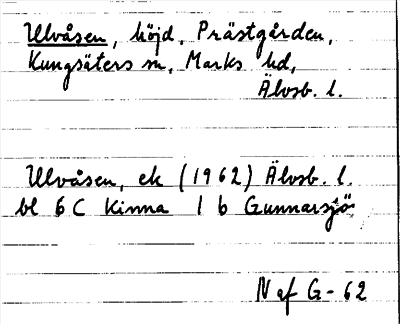 Ulvåsen, höjd, Prästgården,
Kungsäters sn, Marks hd,
Älvsb. l.
Ulvåsen, ek (1962) Älvsb. l.
bl 6 C Kinna 1 b Gunnarsjö
N af G-62